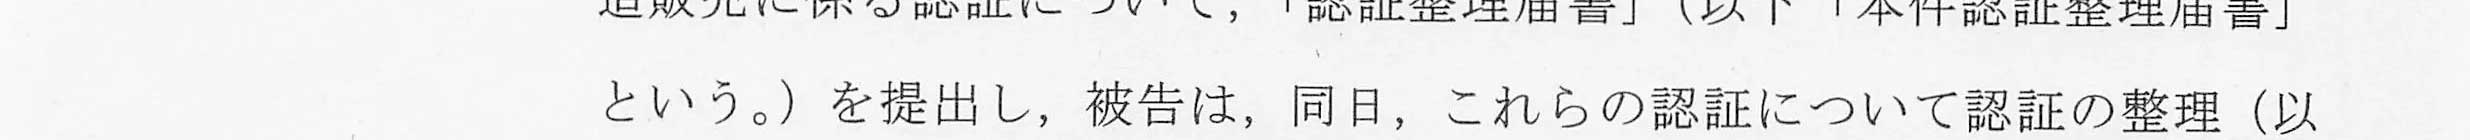 造販売に係る認証について，「認証整理届書」（以下「本件認証整理届書」
という。）を提出し，被告は，同日，これらの認証について認証の整理（以